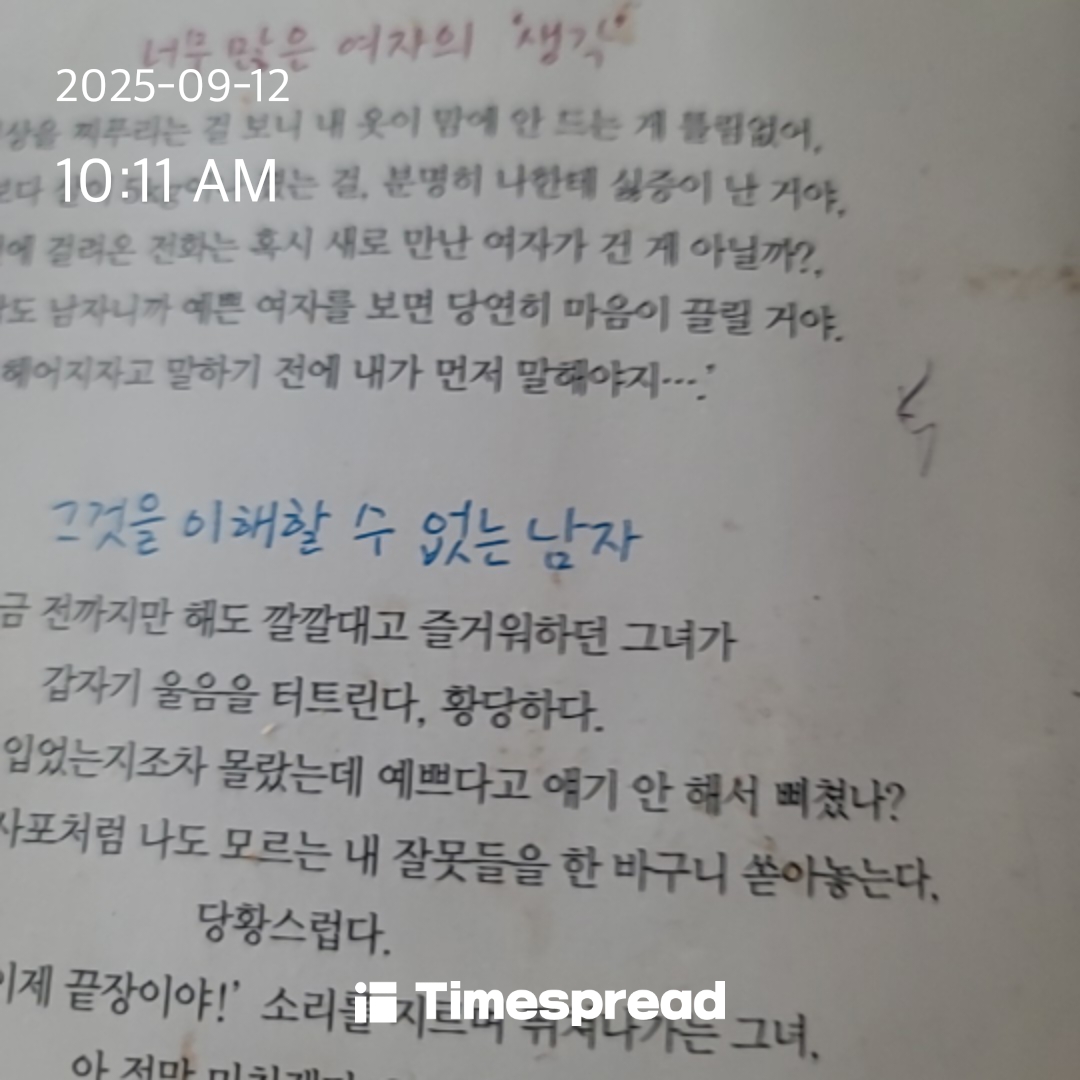 너무 많은 여자의 '생각'
2025-09-12
상을 찌푸리는 걸 보니 내 옷이 맘에 안 드는 게 틀림없어.
10:11 AM
보다 는 걸. 분명히 나한테 싫증이 난 거야.
에 걸려온 전화는 혹시 새로 만난 여자가 건 게 아닐까?
도 남자니까 예쁜 여자를 보면 당연히 마음이 끌릴 거야.
헤어지자고 말하기 전에 내가 먼저 말해야지….'
그것을 이해할 수 없는 남자
금 전까지만 해도 깔깔대고 즐거워하던 그녀가
갑자기 울음을 터트린다, 황당하다.
입었는지조차 몰랐는데 예쁘다고 얘기 안 해서 삐쳤나?
사포처럼 나도 모르는 내 잘못들을 한 바구니 쏟아놓는다.
당황스럽다.
이제 끝장이야!' 소리를 지르며 뛰쳐나가는 그녀.
Timespread
아 정말 미치겠다